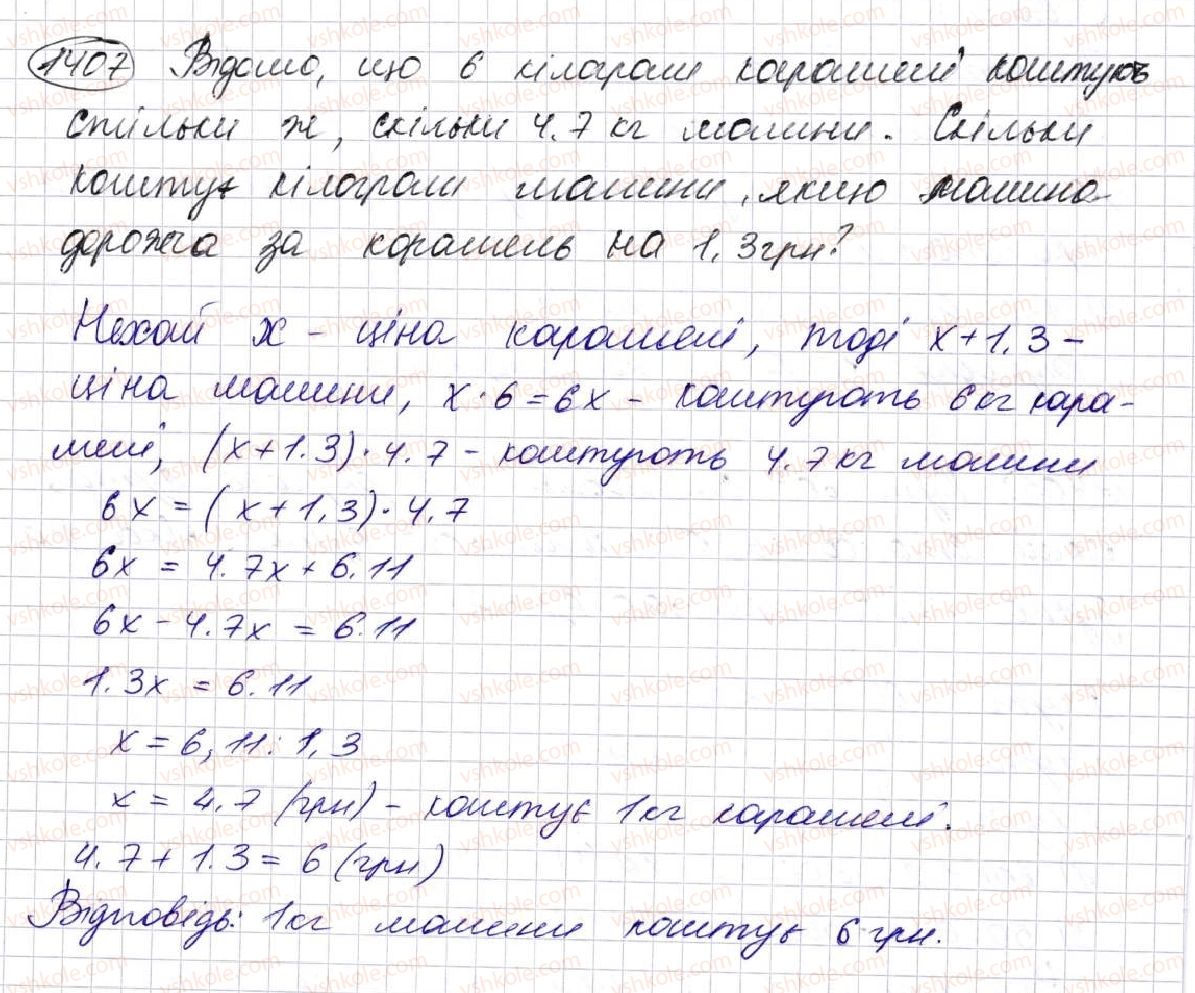 1407 Відомо, що 6 кілограм карамелі коштують
стільки ж, скільки 4.7 кг малини. Скільки
коштує кілограм малини, якщо малина
дорожча за карамель на 1,3 грн?
Нехай х - ціна карамелі, тоді х+1,3 -
ціна малини, х·6=6х - коштують 6 кг кара-
мелі, (х+1.3)·4.7 - коштують 4.7 кг малини
6х = (х+1,3)·4,7
6х = 4.7х+6.11
6х-4.7х = 6.11
1.3х = 6.11
х = 6,11:1,3
х = 4.7 (грн) - коштує 1 кг карамелі.
4.7+1.3=6 (грн)
Відповідь: 1 кг малини коштує 6 грн.